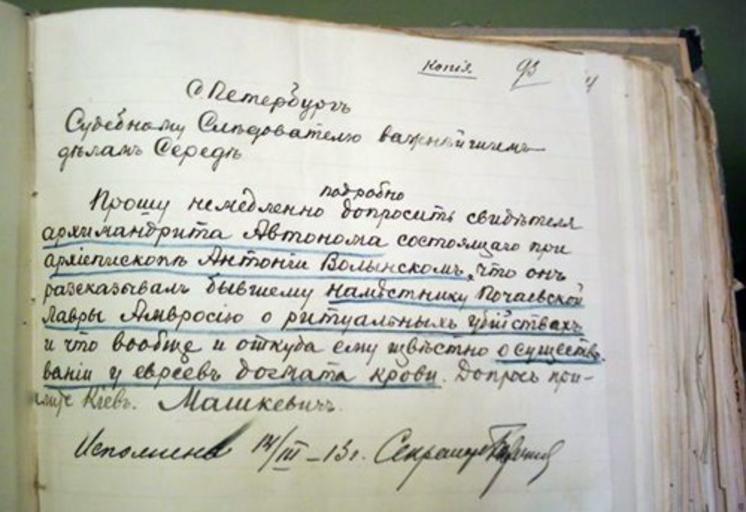 Копія. 93
С Петербургъ
Судебному Слѣдователю важнѣйшимъ
дѣламъ Середѣ
подробно
Прошу немедленно допросить свидѣтеля
архимандрита Автонома состоящаго при
архіепископѣ Антоніи Волынскомъ, что онъ
разсказывалъ бывшему намѣстнику Почаевской
Лавры Амвросію о ритуальныхъ убійствахъ
и что вообще и откуда ему извѣстно о существо-
ваніи у евреевъ догмата крови. Допросъ при-
шлите Кіевъ. Машкевичъ.
Исполнено 14/III-13 г.